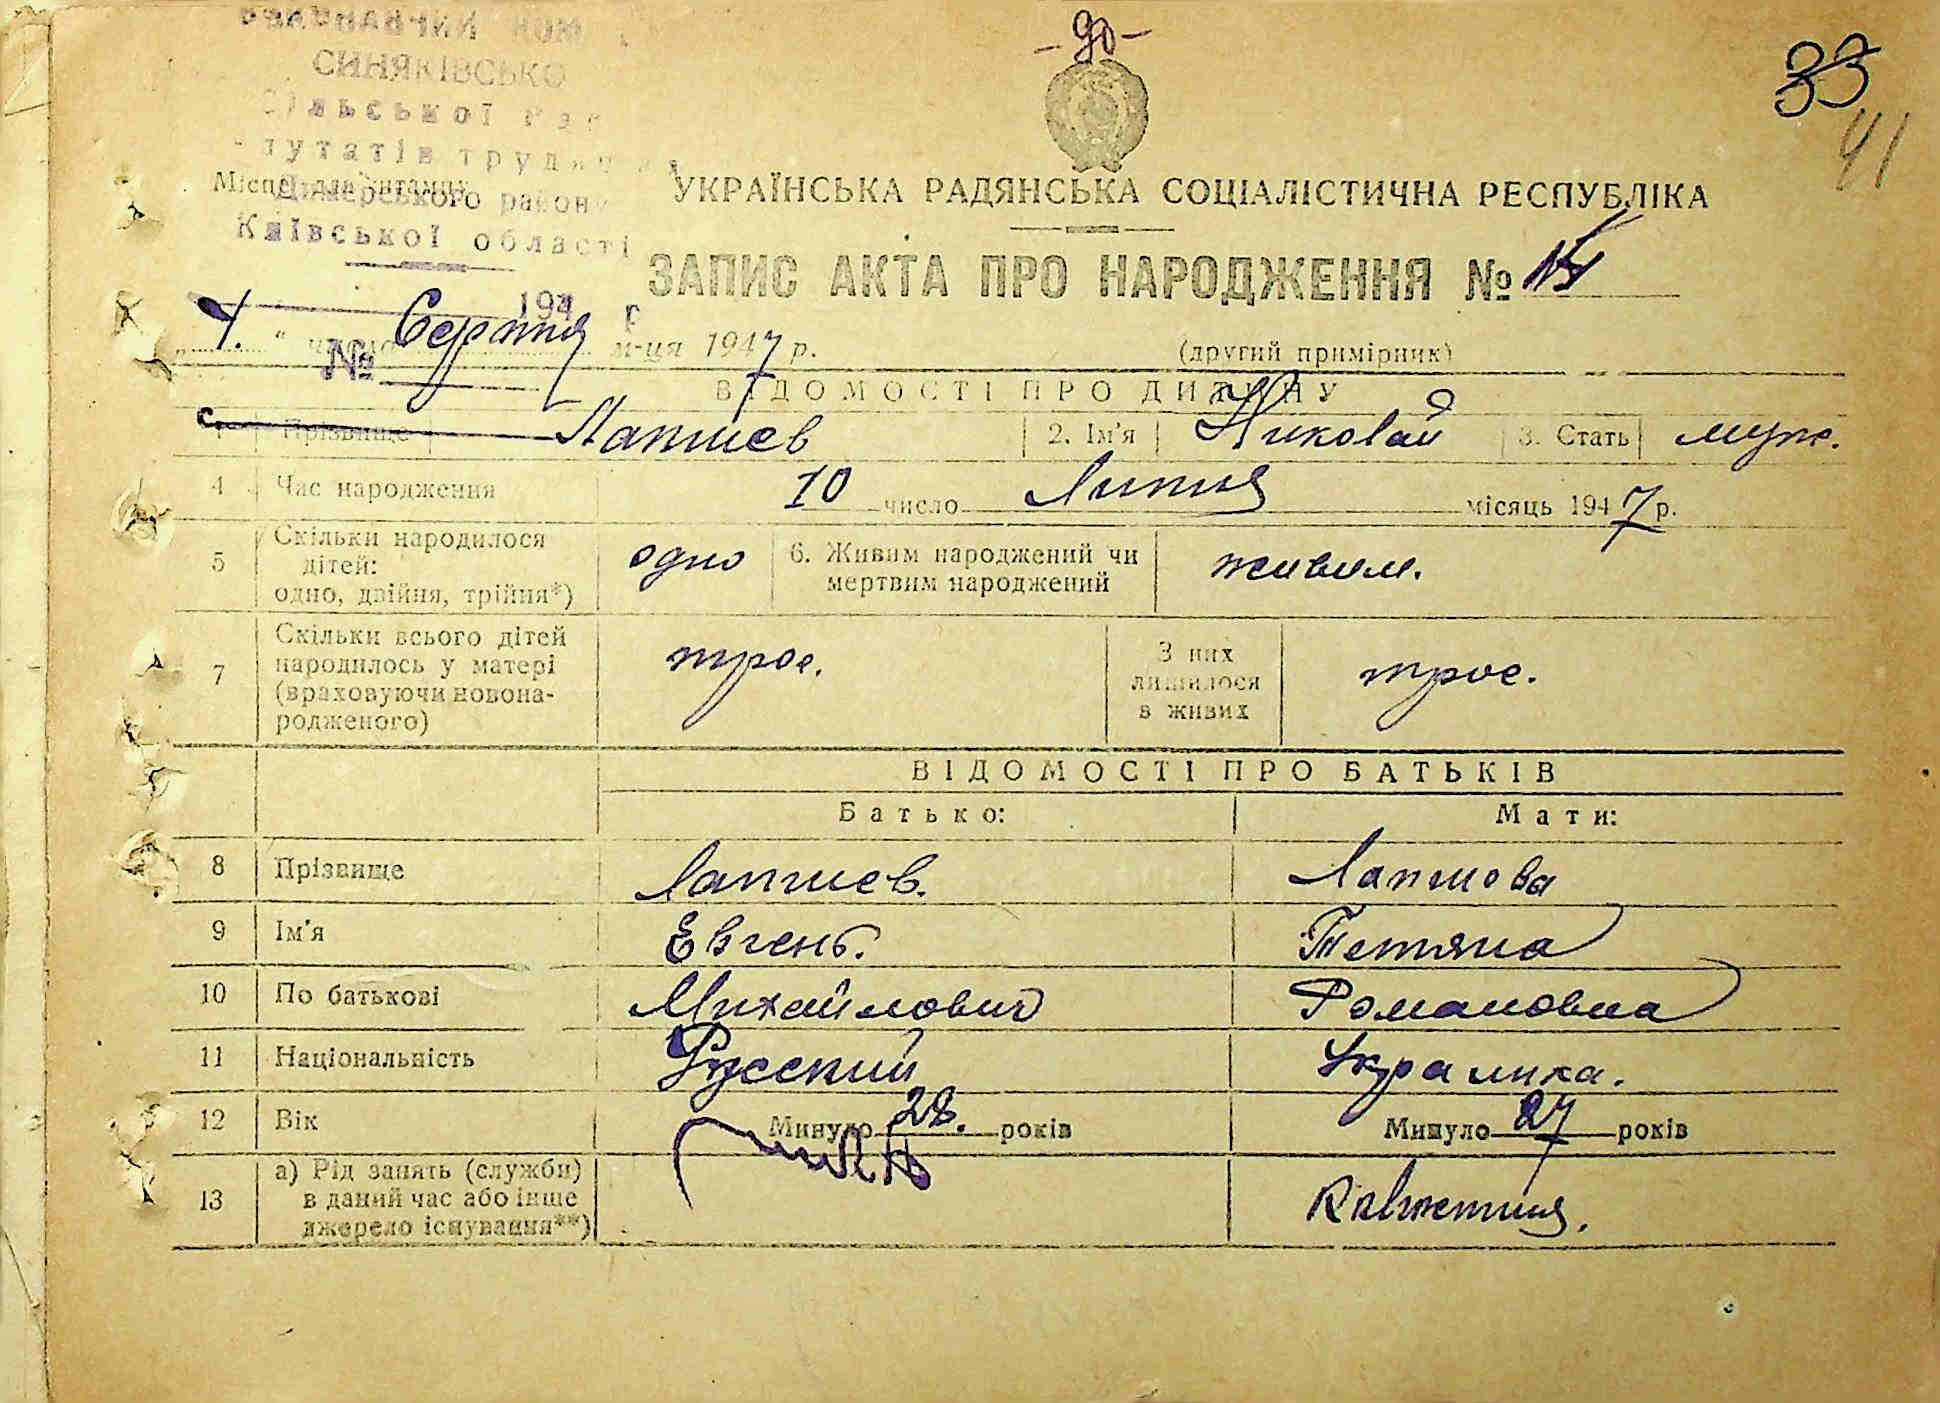 -90-
33
41
СИНЯКІВСЬКО
сільської Рад
депутатів трудящ
Димерського району
Київської області
Місце для штампу
194 р
№
УКРАЇНСЬКА РАДЯНСЬКА СОЦІАЛІСТИЧНА РЕСПУБЛІКА
ЗАПИС АКТА ПРО НАРОДЖЕННЯ №
"1." число Серпня м-ця 1947 р.
(другий примірник)
ВІДОМОСТІ ПРО ДИТИНУ
1 Прізвище Лапшев 2. Ім'я Николай 3. Стать муж.
4 Час народження 10 число Липня місяць 1947 р.
5 Скільки народилося дітей: одно, двійня, трійня*) одно 6. Живим народжений чи мертвим народжений живим.
7 Скільки всього дітей народилось у матері (враховуючи новонародженого) трое. З них лишилося в живих трое.
ВІДОМОСТІ ПРО БАТЬКІВ
Батько: Мати:
8 Прізвище Лапшев. Лапшова
9 Ім'я Евгень. Тетяна
10 По батькові Михайлович Романовна
11 Національність Русский Украинка.
12 Вік Минуло 28. років Минуло 27 років
13 а) Рід занять (служби) в даний час або інше джерело існування**)